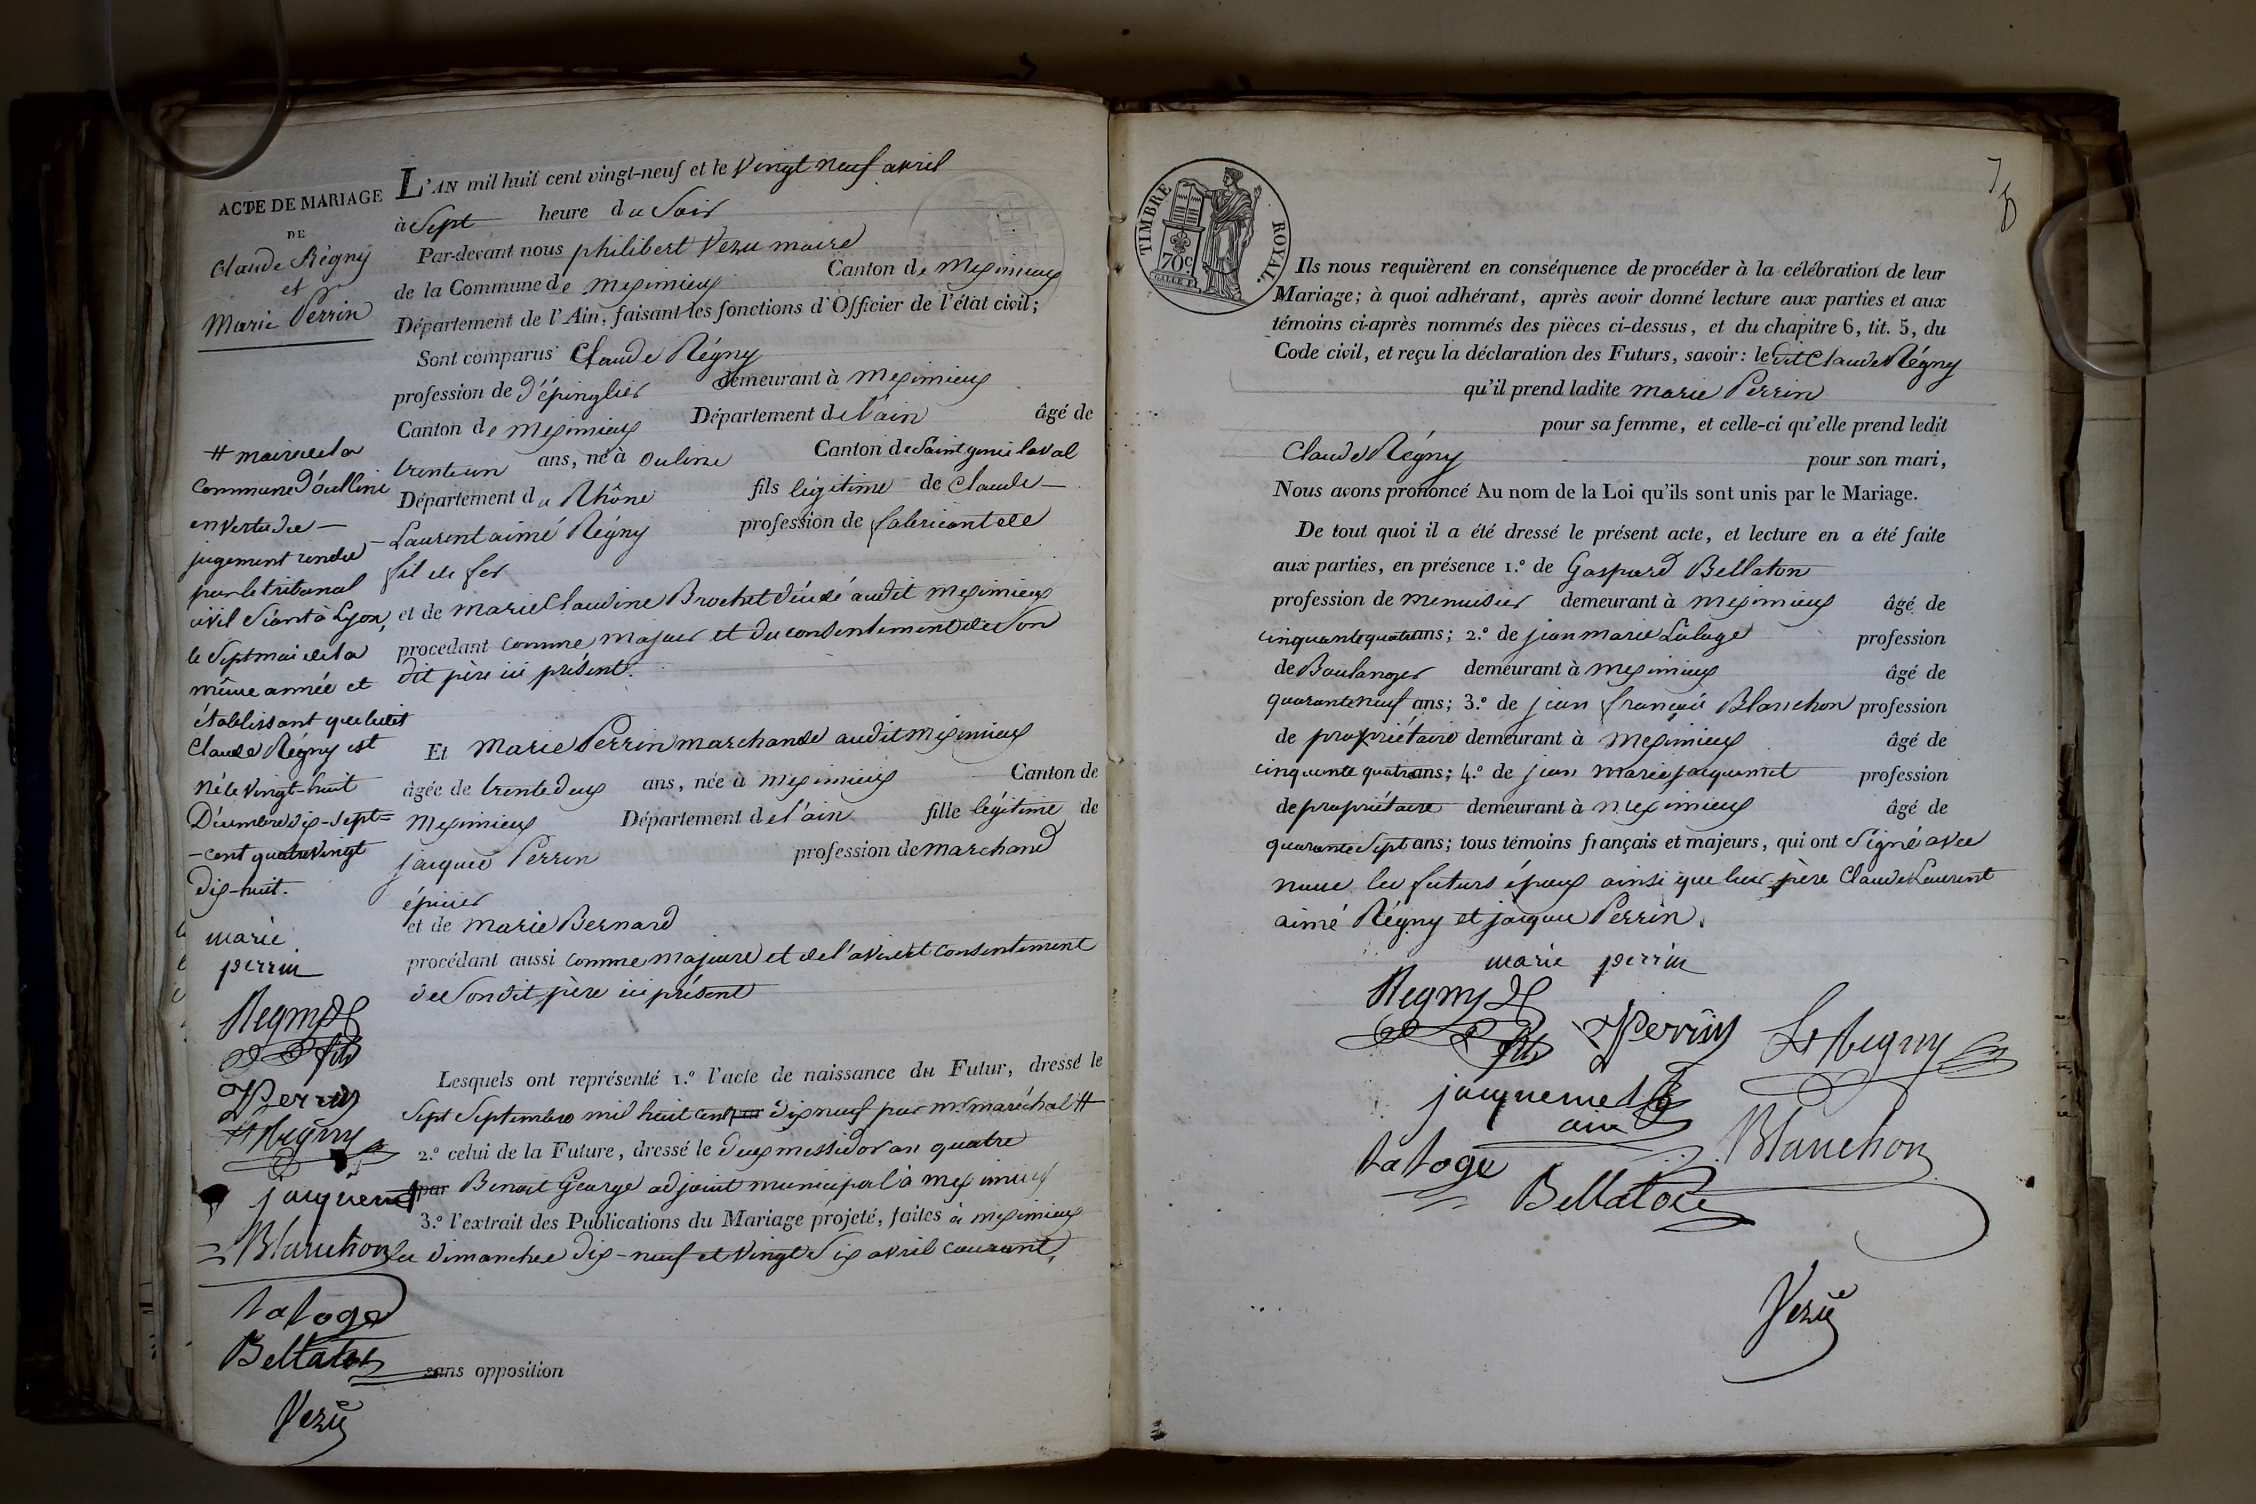 ACTE DE MARIAGE
DE
Claude Régny
et
Marie Perrin
L'AN mil huit cent vingt-neuf et le Vingt neuf avril
à Sept heure du Soir
Par-devant nous philibert Vezu maire
de la Commune de Meximieux Canton de Meximieux
Département de l'Ain, faisant les fonctions d'Officier de l'état civil;
Sont comparus Claude Régny
profession de d'épinglier demeurant à Meximieux
Canton de Meximieux Département de l'ain âgé de
trente un ans, né à Ouline Canton de Saint genis laval
Département du Rhône fils légitime de Claude
Laurent aimé Régny profession de fabricant de
fil de fer
et de Marie Claudine Brochet décédé audit Meximieux
procédant comme majeur et du consentement de Son
dit père ici présent.
Et Marie Perrin marchande audit Meximieux
âgée de trente deux ans, née à Meximieux Canton de
Meximieux Département de l'ain fille légitime de
jacques Perrin profession de marchand
épicier
et de Marie Bernard
procédant aussi comme majeure et de l'avis et consentement
de Son dit père ici présent
Lesquels ont représenté 1.º l'acte de naissance du Futur, dressé le
Sept Septembre mil huit cent par dix neuf par mr maréchal #
2.º celui de la Future, dressé le deux messidor an quatre
par Benoit George adjoint municipal à Meximieux
3.º l'extrait des Publications du Mariage projeté, faites à Meximieux
les dimanches dix-neuf et vingt Six avril courant,
sans opposition
# maire de la
commune d'oulline
en vertu du
jugement rendu
par le tribunal
civil Séant à Lyon,
le Sept mai de la
même année et
établissant que ledit
Claude Régny est
né le vingt-huit
Décembre dix-sept=
-cent quatre vingt
dix-huit.
marie
perrin
Regny
fils
Perrin
Lt Regny
jacquemet
Blanchon
Laloge
Bellaton
Vezu
TIMBRE ROYAL.
70 c.
Ils nous requièrent en conséquence de procéder à la célébration de leur
Mariage; à quoi adhérant, après avoir donné lecture aux parties et aux
témoins ci-après nommés des pièces ci-dessus, et du chapitre 6, tit. 5, du
Code civil, et reçu la déclaration des Futurs, savoir: le dit Claude Régny
qu'il prend ladite marie Perrin
pour sa femme, et celle-ci qu'elle prend ledit
Claude Régny pour son mari,
Nous avons prononcé Au nom de la Loi qu'ils sont unis par le Mariage.
De tout quoi il a été dressé le présent acte, et lecture en a été faite
aux parties, en présence 1.º de Gaspard Bellaton
profession de menuisier demeurant à Meximieux âgé de
cinquante quatre ans; 2.º de jean marie Laloge profession
de Boulanger demeurant à Meximieux âgé de
quarante neuf ans; 3.º de jean françois Blanchon profession
de propriétaire demeurant à Meximieux âgé de
cinquante quatre ans; 4.º de jean marie jacquemet profession
de propriétaire demeurant à Meximieux âgé de
quarante Sept ans; tous témoins français et majeurs, qui ont Signé avec
nous les futurs époux ainsi que leur père Claude Laurent
aimé Régny et jacques Perrin.
marie perrin
Regny
fils
Perrin
Lt Regny
jacquemet
Laloge
Blanchon
Bellaton
Vezu